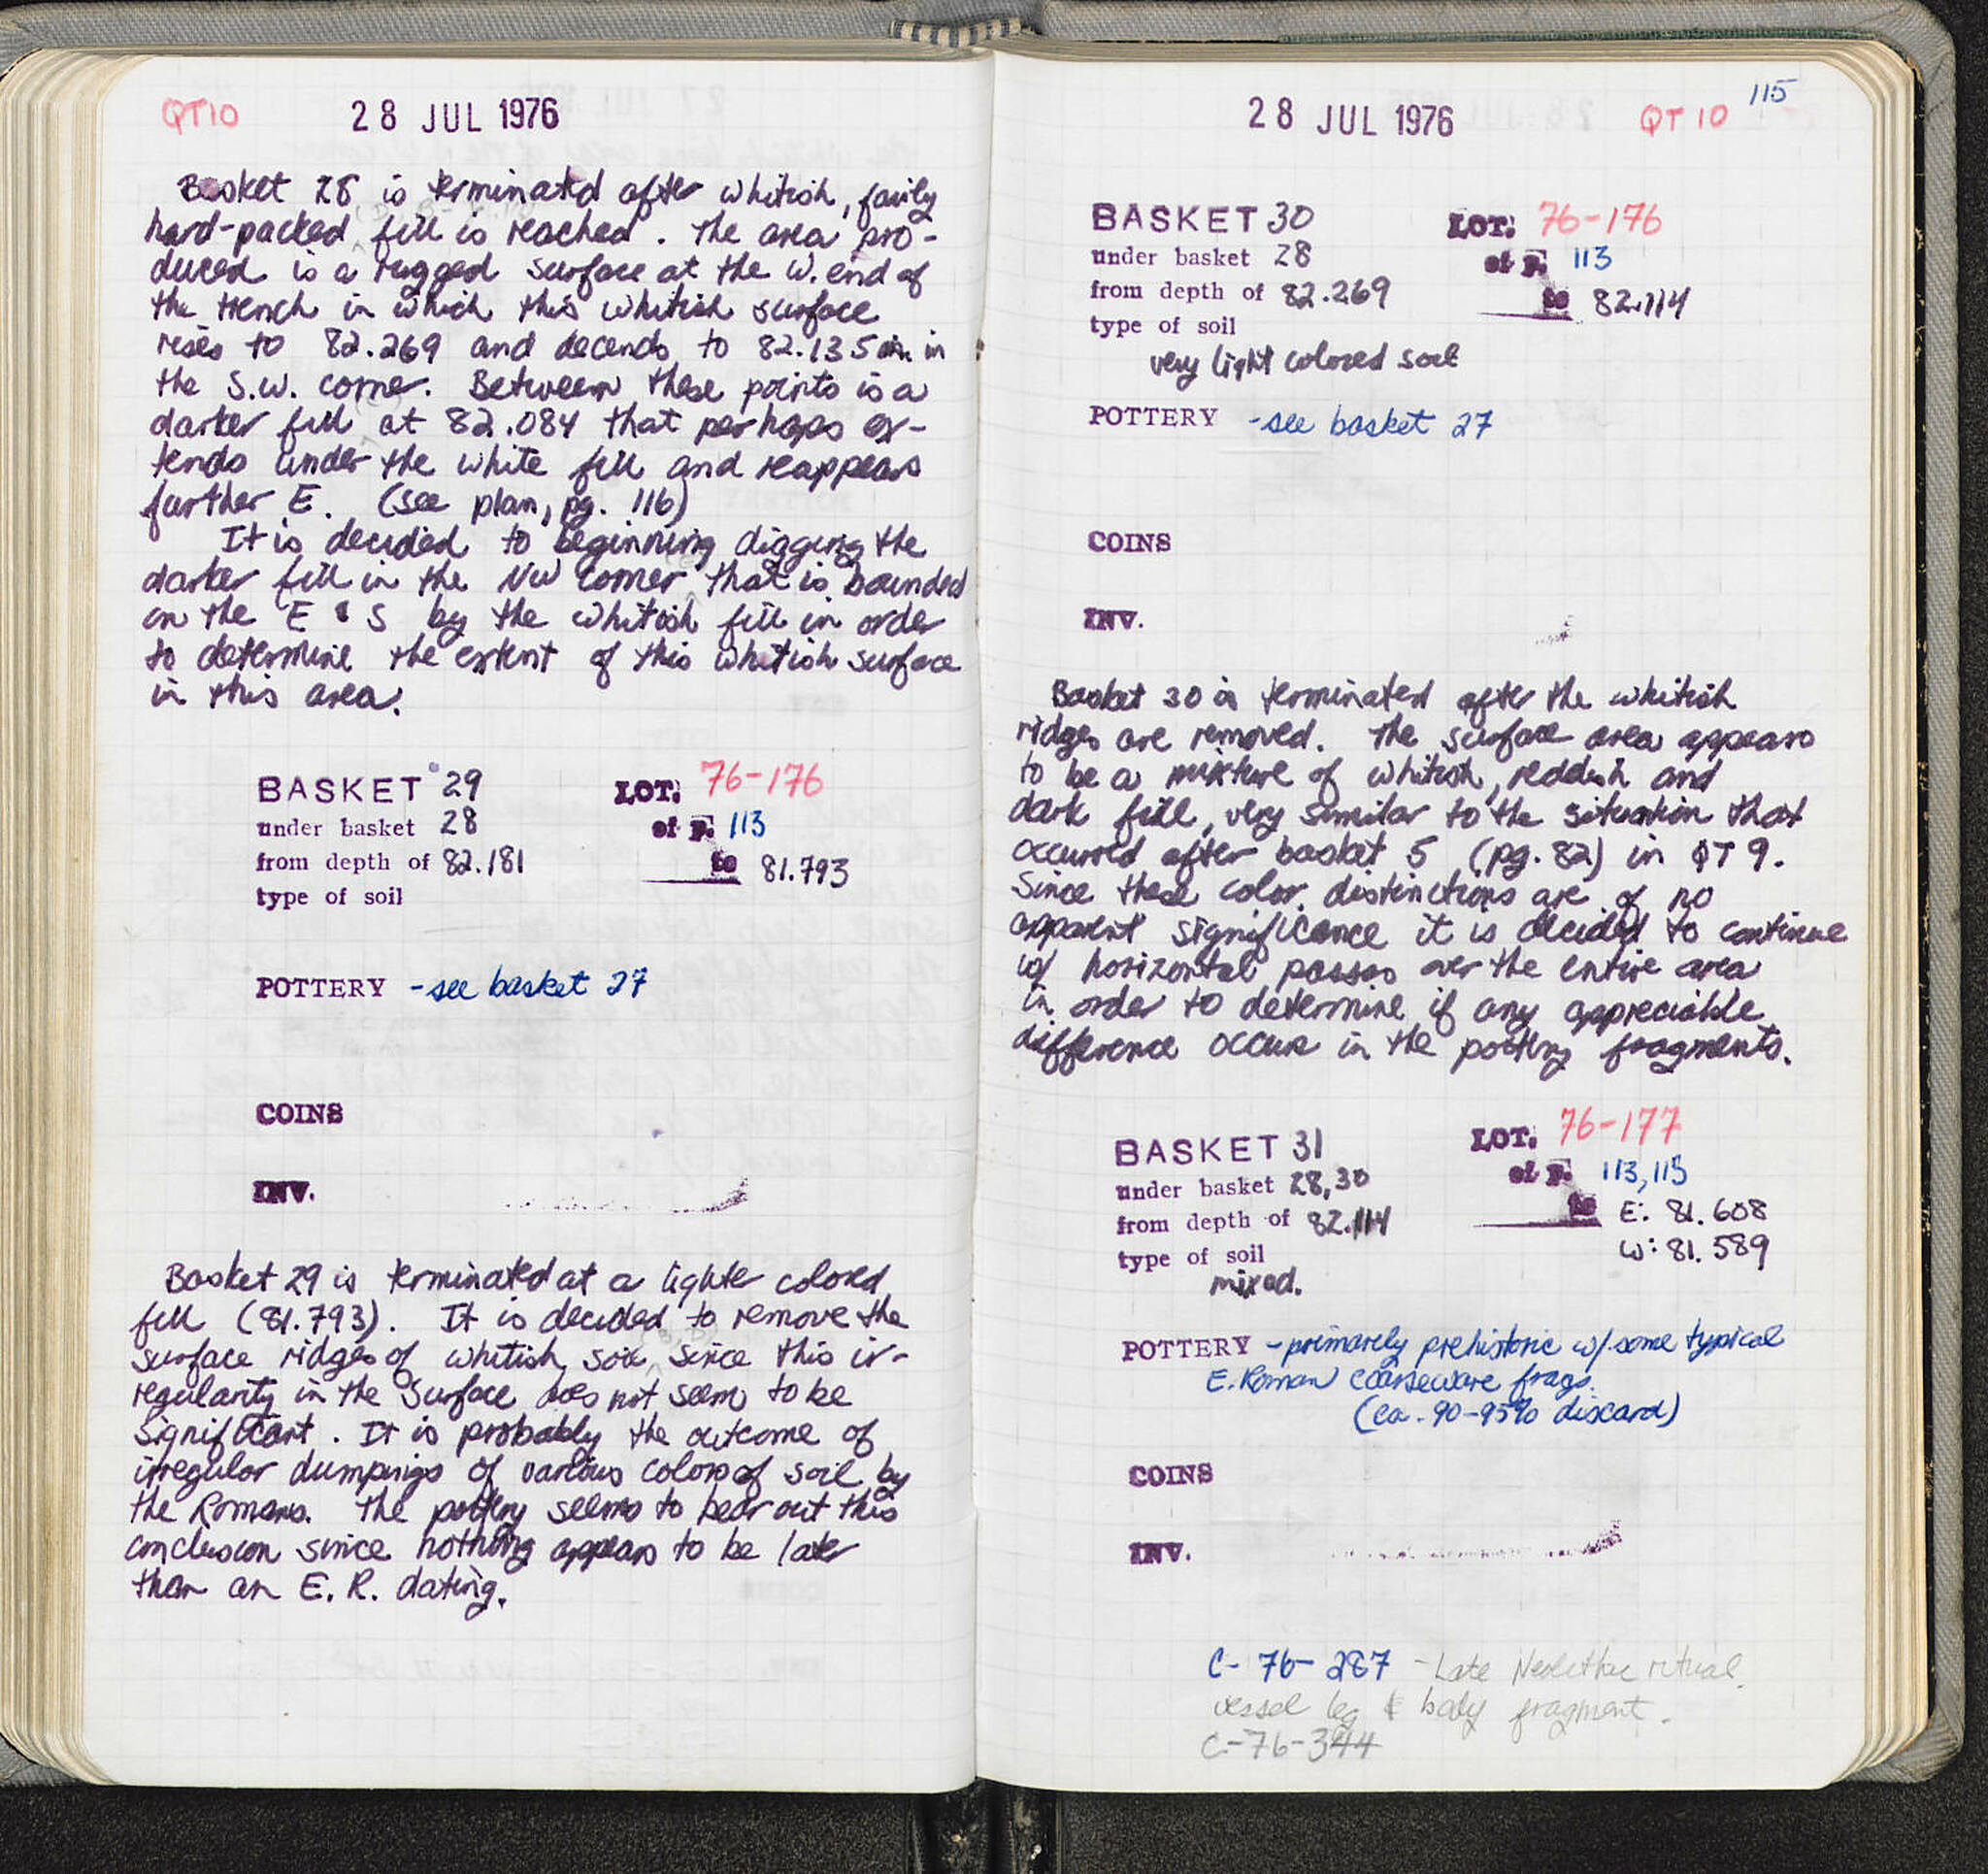 QT10 28 JUL 1976
Basket 28 is terminated after whitish, fairly
hard-packed fill is reached. The area pro-
duced is a rugged surface at the W. end of
the trench in which this whitish surface
rises to 82.269 and decends to 82.135 in
the S.W. corner. Between these points is a
darker fill at 82.084 that perhaps ex-
tends under the white fill and reappears
further E. (see plan, pg. 116)
It is decided to beginning digging the
darker fill in the NW corner that is bounded
on the E & S by the whitish fill in order
to determine the extent of this whitish surface
in this area.
BASKET 29 LOT: 76-176
under basket 28 of p. 113
from depth of 82.181 to 81.793
type of soil
POTTERY - see basket 27
COINS
INV.
Basket 29 is terminated at a lighter colored
fill (81.793). It is decided to remove the
surface ridges of whitish soil since this ir-
regularity in the surface does not seem to be
significant. It is probably the outcome of
irregular dumpings of various colors of soil by
the Romans. The pottery seems to bear out this
conclusion since nothing appears to be later
than an E. R. dating.
115
28 JUL 1976 QT 10
BASKET 30 LOT: 76-176
under basket 28 of p. 113
from depth of 82.269 to 82.114
type of soil
very light colored soil
POTTERY - see basket 27
COINS
INV.
Basket 30 is terminated after the whitish
ridges are removed. The surface area appears
to be a mixture of whitish, reddish and
dark fill, very similar to the situation that
occurred after basket 5 (pg. 82) in QT 9.
Since these color distinctions are of no
apparent significance it is decided to continue
w/ horizontal passes over the entire area
in order to determine if any appreciable
difference occurs in the pottery fragments.
BASKET 31 LOT: 76-177
under basket 28,30 of p. 113,115
from depth of 82.114 to E: 81.608
type of soil W: 81.589
mixed.
POTTERY - primarely prehistoric w/ some typical
E. Roman coarseware frags.
(ca. 90-95% discard)
COINS
INV.
C-76-287 - Late Neolithic ritual
vessel leg & body fragment.
C-76-344